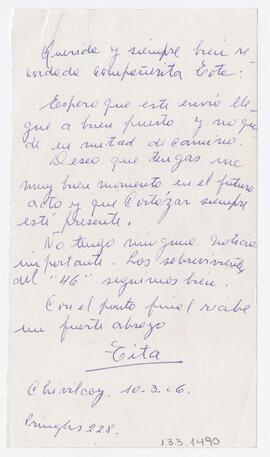 Querida y siempre bien re-
cordada compañerita Tota:
Espero que este envío lle-
gue a buen puerto y no que-
de en mitad de camino.
Deseo que tengas un
muy buen momento en el futuro
acto y que Cortázar siempre
esté presente.
No tengo ninguna noticia
importante. Los sobrevivientes
del "46" seguimos bien.
Con el punto final recibe
un fuerte abrazo
Tita
Chivilcoy, 10.3.06.
Pringles 228.
133.1490